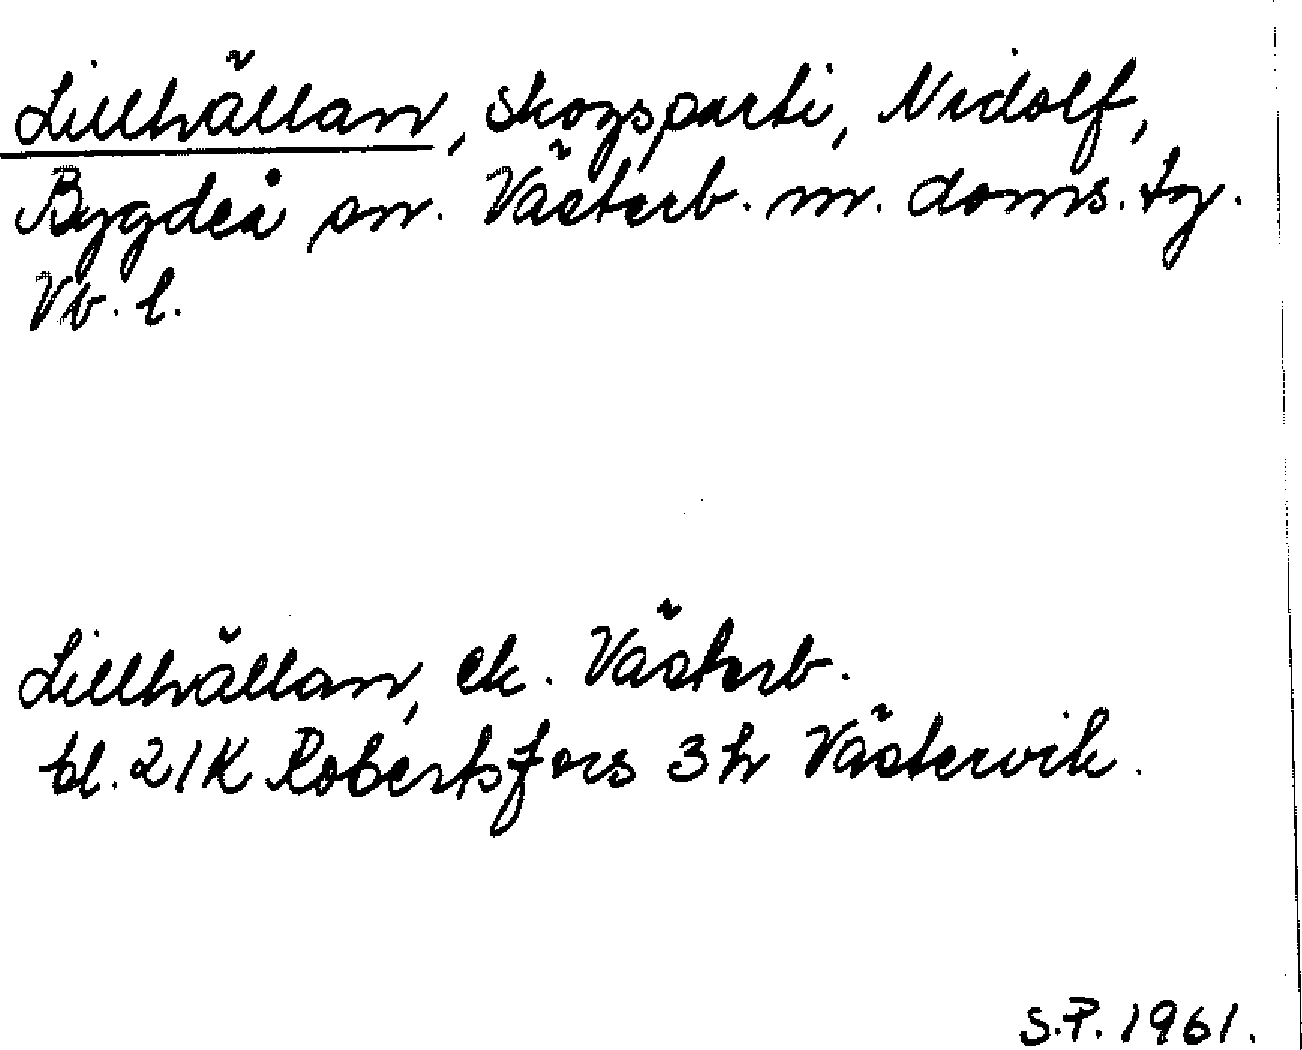 Lillhällan, skogsparti, Nidolf,
Bygdeå sn. Västerb. m. doms. tg.
Vb. l.
Lillhällan, ek. Västerb.
bl. 21K Robertsfors 3 h Västervik.
S.P. 1961.